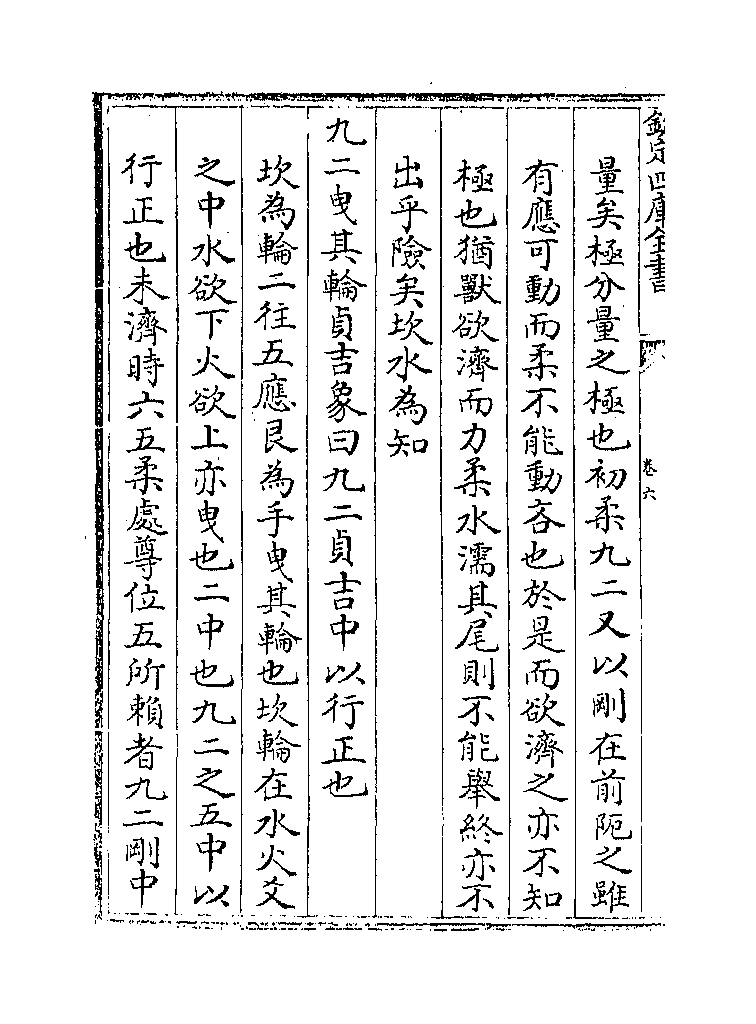 欽定四庫全書
卷六
量矣極分量之極也初柔九二又以剛在前阨之雖
有應可動而柔不能動吝也於是而欲濟之亦不知
極也猶獸欲濟而力柔水濡其尾則不能舉終亦不
出乎險矣坎水為知
九二曳其輪貞吉象曰九二貞吉中以行正也
坎為輪二往五應艮為手曳其輪也坎輪在水火爻
之中水欲下火欲上亦曳也二中也九二之五中以
行正也未濟時六五柔處尊位五所賴者九二剛中